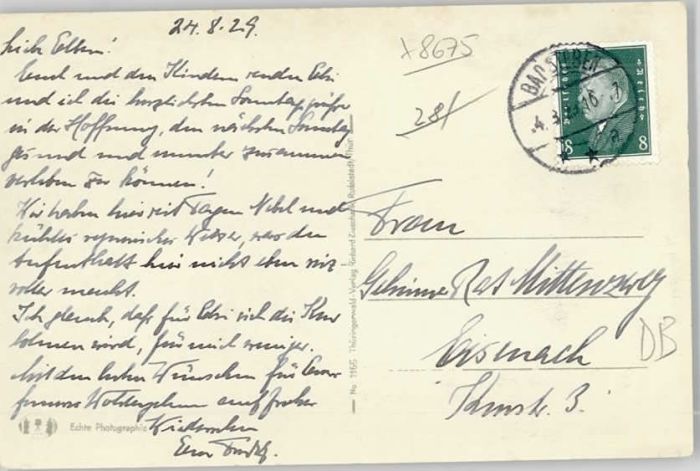 24.8.29.
Liebe Eltern!
Euch und den Kindern senden
und ich die herzlichsten Sonntagsgrüße
in der Hoffnung, den nächsten Sonntag
gesund und munter zusammen
verleben zu können!
Wir haben hier seit Tagen Nebel und
kühles regnerisches Wetter, was den
Aufenthalt hier nicht eben
voller macht.
Ich glaube, daß für sich die Kur
lohnen wird, für mich weniger.
Mit den besten Wünschen für Euer
ferneres Wohlergehen auf frohes
Wiedersehn
Euer
Echte Photographie
No. 1166 Thüringerwald-Verlag Gerhard Rudolstadt/Thür.
x8675
28
8 8
Frau
Geheime Rat Mittenzwey
Eisenach
3.
DB